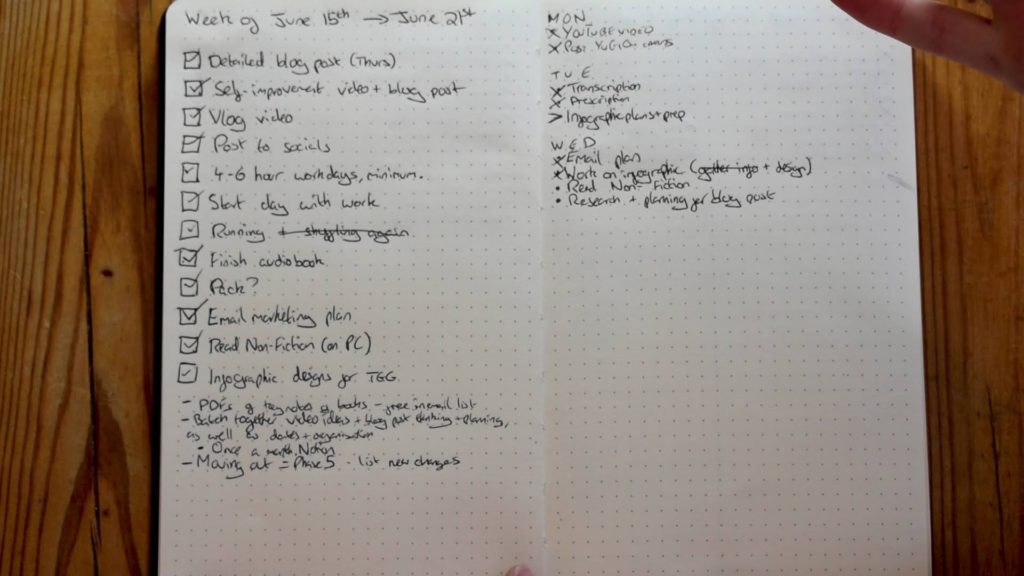 Week of June 15th → June 21st
Detailed blog post (Thurs)
Self-improvement video + blog post
Vlog video
Post to socials
4-6 hour workdays, minimum.
Start day with work
Running + shuffling again
Finish audiobook
Pack?
Email marketing plan
Read Non-Fiction (on PC)
Infographic designs for TGG
- PDFs of key notes of books - free in email list
- Batch together video ideas + blog post + planning,
as well as dates + organisation
• Once a month Notion
- Moving out = Phase 5 - list new changes
MON
× YOUTUBE VIDEO
× Post YuGiOh cards
TUE
× Transcription
× Prescription
> Infographic plans + prep
WED
× Email plan
× Work on infographic (gather info + design)
• Read Non-Fiction
• Research + planning for blog post